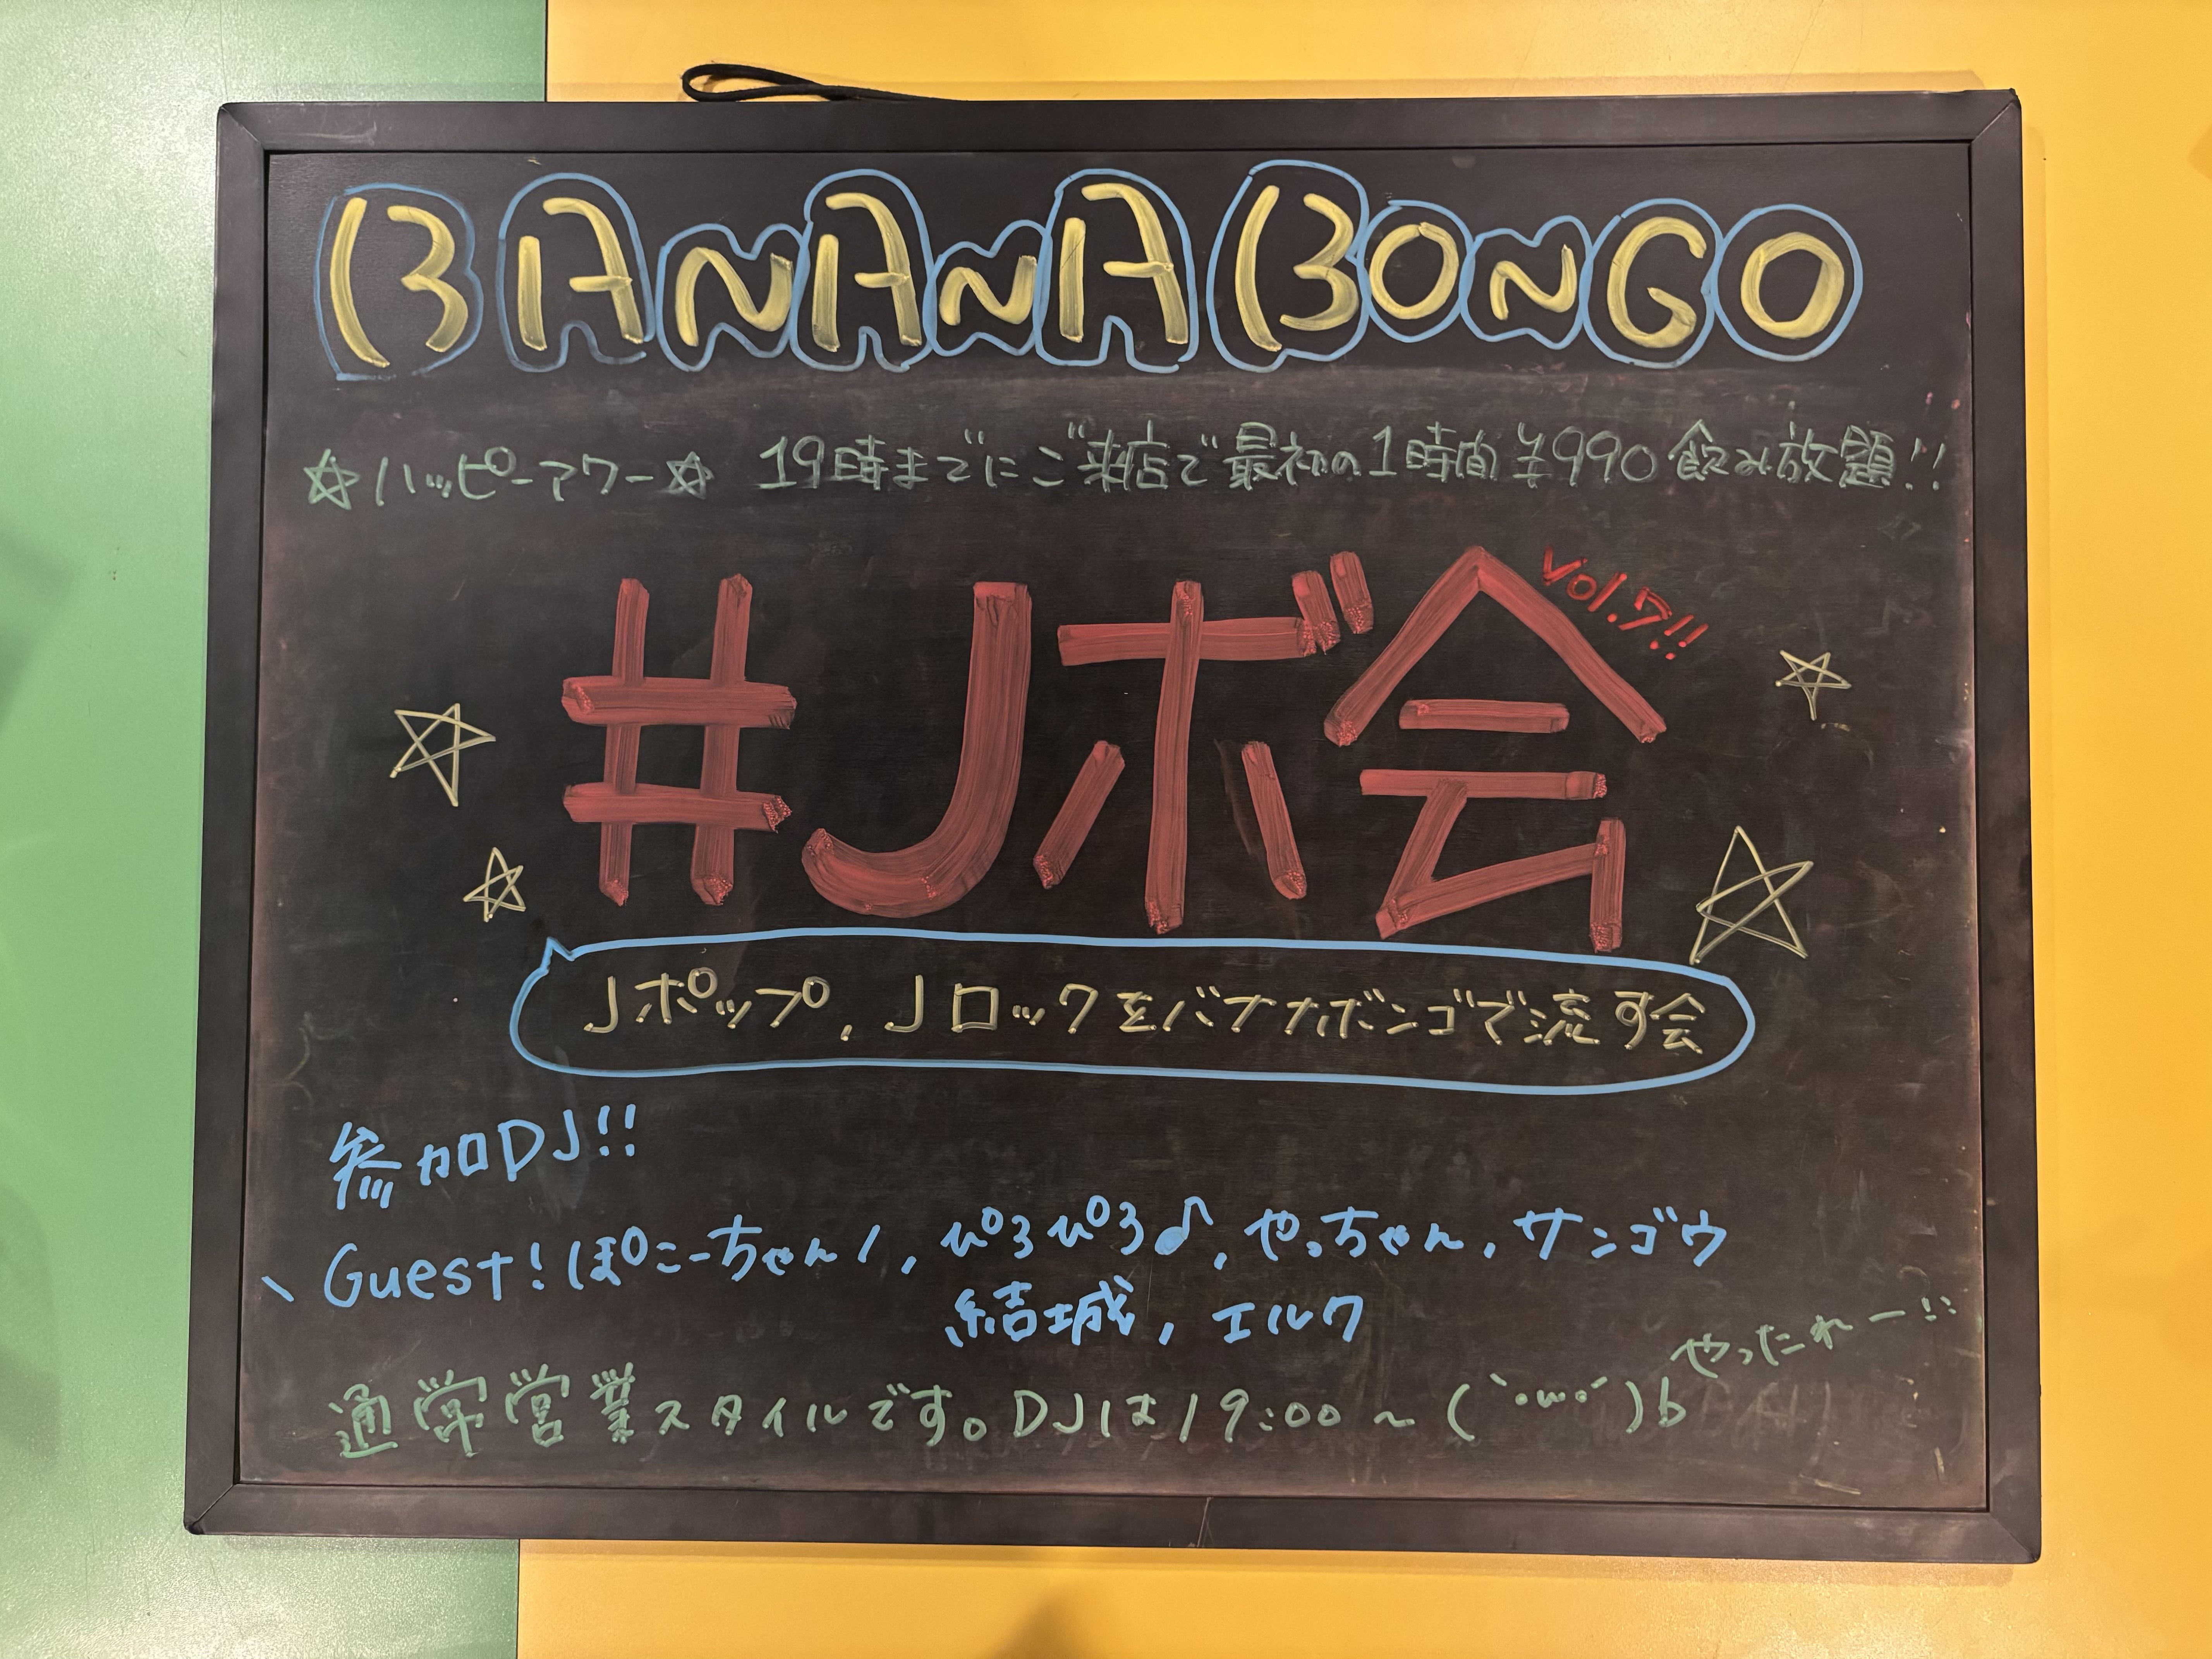 BANANA BONGO
☆ハッピーアワー☆ 19時までにご来店で最初の1時間¥990飲み放題!!
#Jボ会 Vol.7!!
Jポップ,Jロックをバナナボンゴで流す会
参加DJ!!
\ Guest!ぽこーちゃん/,ぴろぴろ♪,やっちゃん,サンゴウ
結城,エルク
やったれー!!
通常営業スタイルです。DJは19:00~(｀・ω・´)b